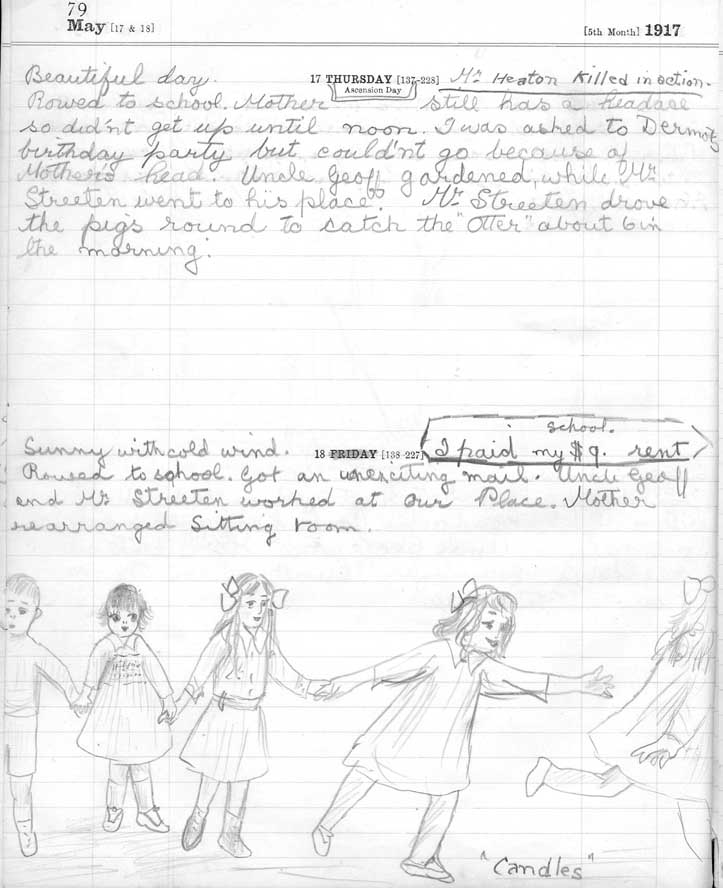 79
May [17 & 18] [5th Month] 1917
Beautiful day. 17 THURSDAY [137-228] Mr Heaton Killed in action.
Ascension Day
Rowed to school. Mother still has a headace
so did'nt get up until noon. I was asked to Dermots
birthday party but could'nt go because of
Mothers head. Uncle Geoff gardened, while Mr
Streeten went to his place. Mr Streeten drove
the pigs round to catch the "Otter" about 6 in
the morning.
school.
Sunny with cold wind. 18 FRIDAY [138-227] I paid my $9. rent
Rowed to school. Got an unexciting mail. Uncle Geoff
and Mr Streeten worked at our Place. Mother
rearranged Sitting room.
"Candles"